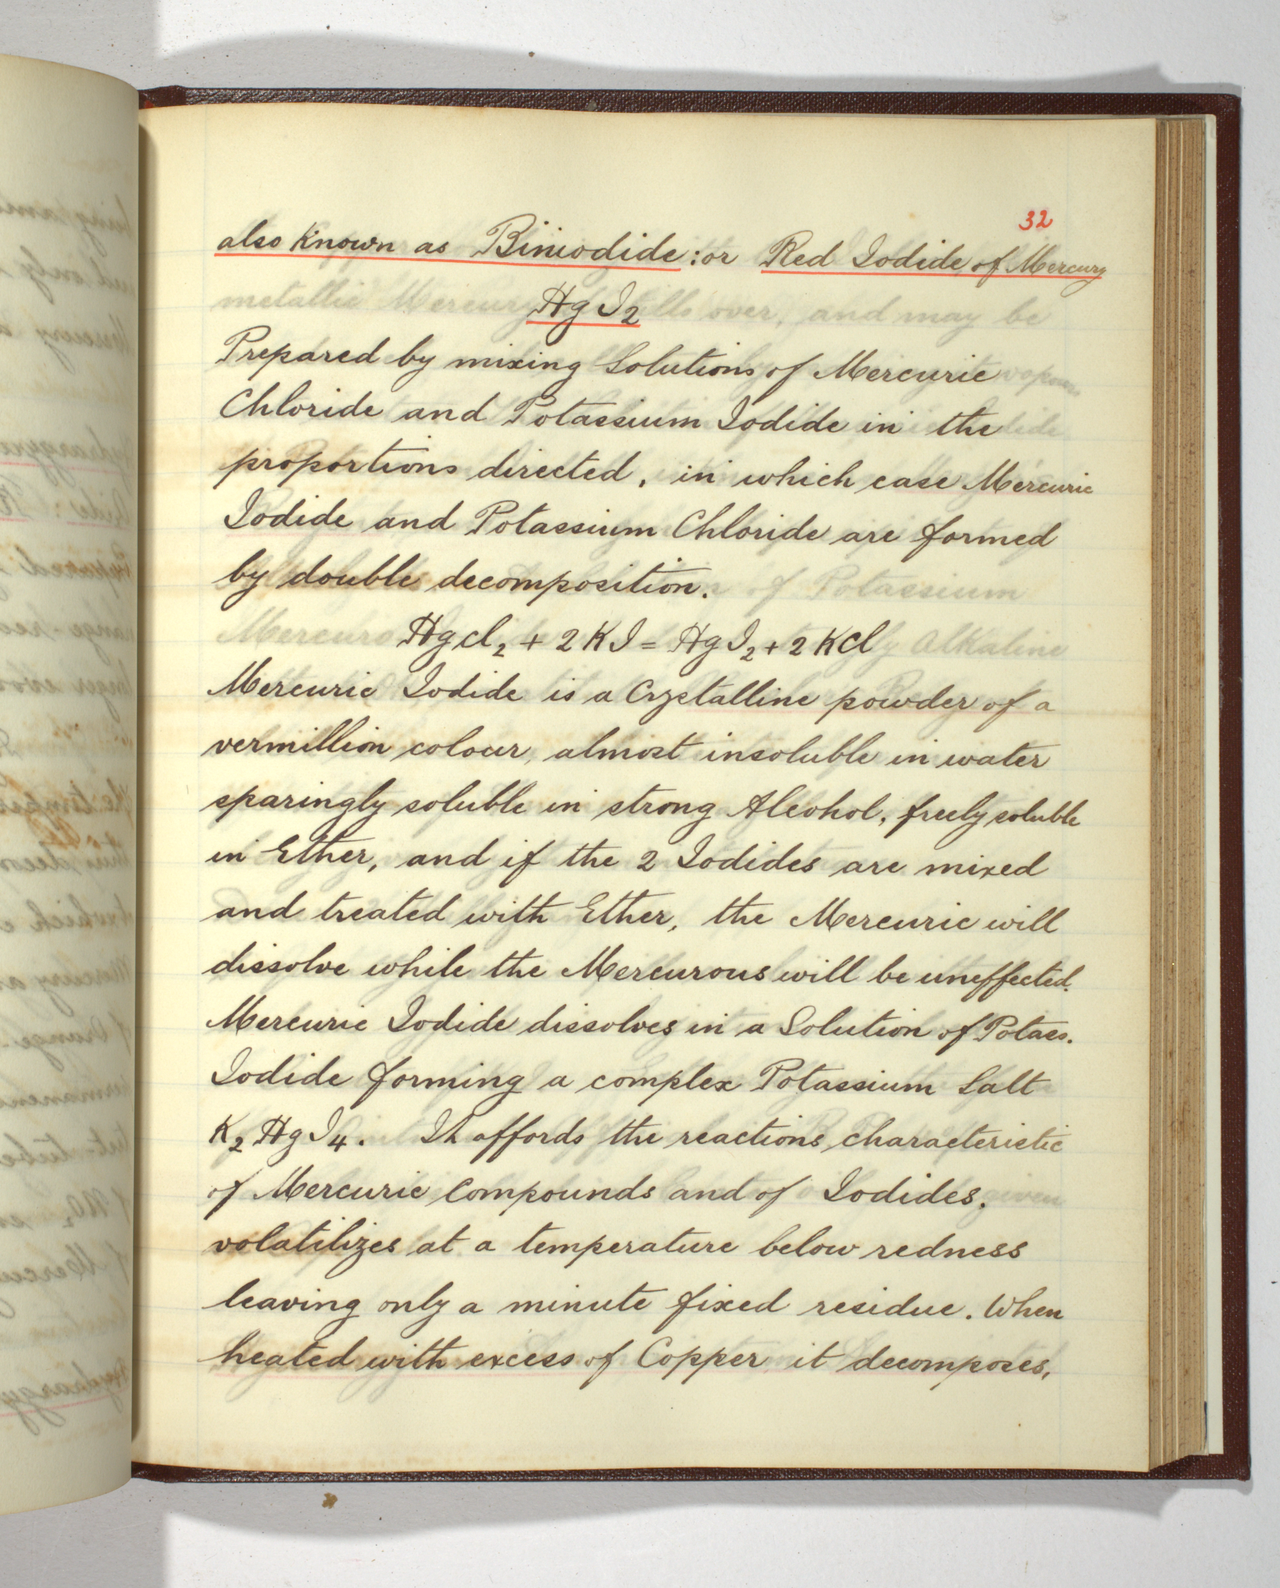 32
also known as Biniodide: or Red Iodide of Mercury
HgI2
Prepared by mixing Solutions of Mercuric
Chloride and Potassium Iodide in the
proportions directed, in which case Mercuric
Iodide and Potassium Chloride are formed
by double decomposition.
HgCl2 + 2KI = HgI2 + 2KCl
Mercuric Iodide is a Crystalline powder of a
vermillion colour, almost insoluble in water
sparingly soluble in strong Alcohol, freely soluble
in Ether, and if the 2 Iodides are mixed
and treated with Ether, the Mercuric will
dissolve while the Mercurous will be uneffected.
Mercuric Iodide dissolves in a Solution of Potass.
Iodide forming a complex Potassium Salt
K2HgI4. It affords the reactions characteristic
of Mercuric Compounds and of Iodides.
volatilizes at a temperature below redness
leaving only a minute fixed residue. When
heated with excess of Copper it decomposes,